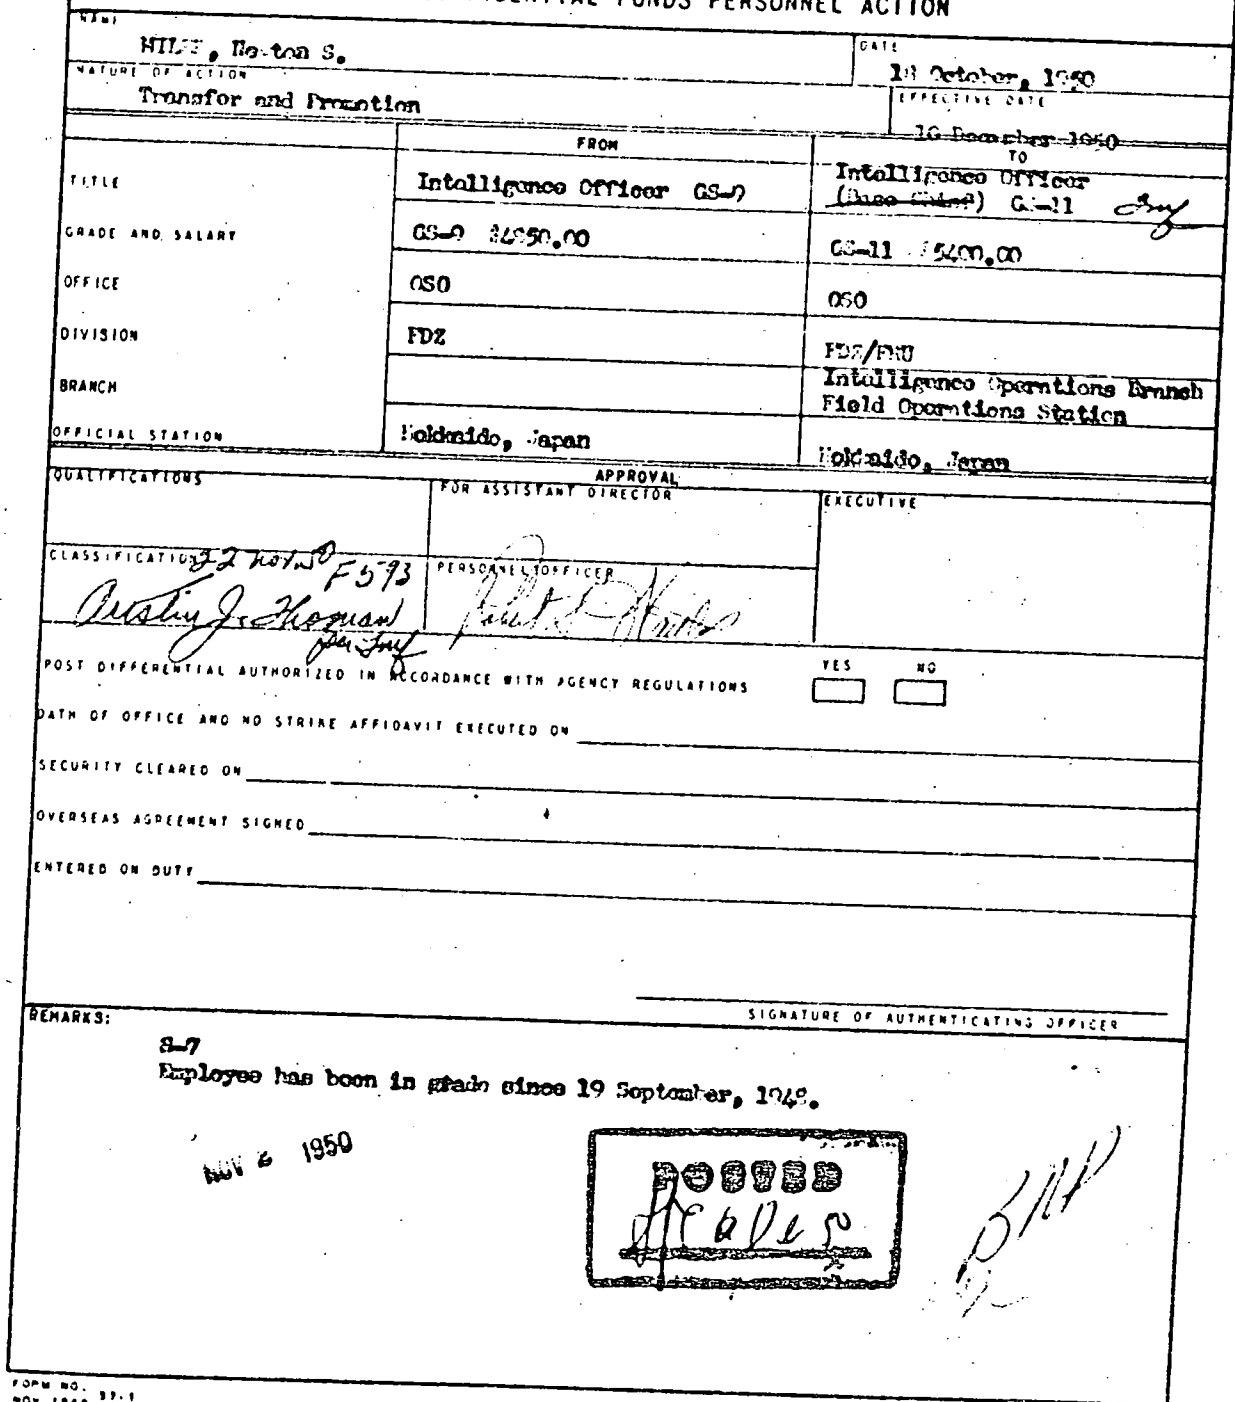 FUNDS PERSONNEL ACTION
NAME
S.
DATE
October, 1950
NATURE OF ACTION
Transfer and Promotion
EFFECTIVE DATE
1950
FROM
TO
TITLE
Intelligence Officer GS-9
Intelligence Officer
(Base Chief) GS-11
GRADE AND SALARY
GS-9 $4850.00
GS-11 $5400.00
OFFICE
OSO
OSO
DIVISION
FDZ
BRANCH
Intelligence Operations Branch
Field Operations Station
OFFICIAL STATION
Hokkaido, Japan
Hokkaido, Japan
APPROVAL
QUALIFICATIONS
FOR ASSISTANT DIRECTOR
EXECUTIVE
CLASSIFICATION 22 Nov 50
F593
PERSONNEL OFFICER
Austin J.
POST DIFFERENTIAL AUTHORIZED IN ACCORDANCE WITH AGENCY REGULATIONS
YES NO
OATH OF OFFICE AND NO STRIKE AFFIDAVIT EXECUTED ON
SECURITY CLEARED ON
OVERSEAS AGREEMENT SIGNED
ENTERED ON DUTY
SIGNATURE OF AUTHENTICATING OFFICER
REMARKS:
S-7
Employee has been in grade since 19 September, 1948.
NOV 1950
POSTED
FORM NO. 37-1
NOV